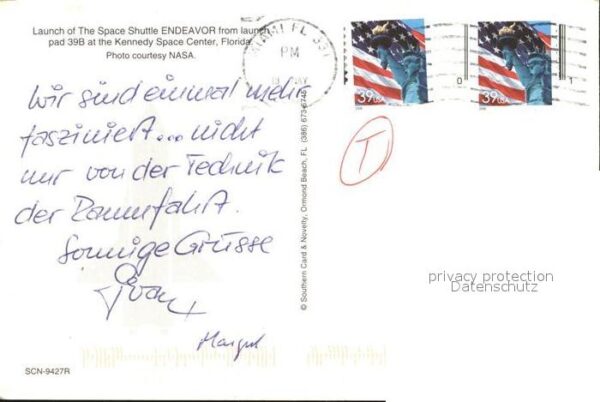 Launch of The Space Shuttle ENDEAVOR from launch
pad 39B at the Kennedy Space Center, Florida.
Photo courtesy NASA.
MIAMI FL 33
PM
MAY
39 USA
0
39 USA
1
T
Wir sind einmal mehr
fasziniert... nicht
nur von der Technik
der Raumfahrt.
Sonnige Grüsse
© Southern Card & Novelty, Ormond Beach, FL (386) 673-6745
privacy protection
Datenschutz
SCN-9427R